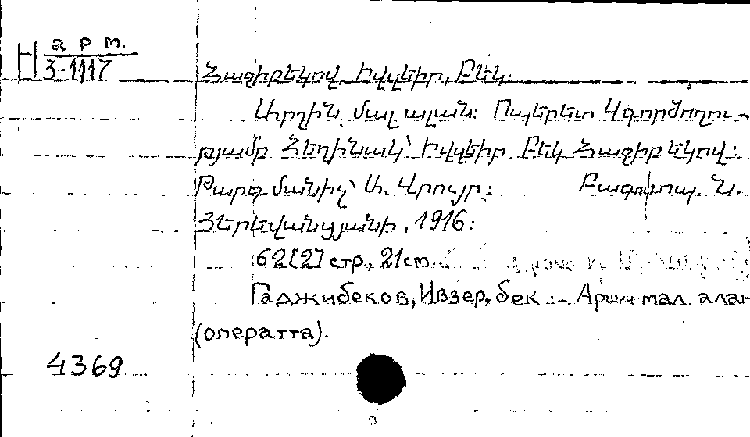 а р т.
Н 3-1117
Հաջիբեկով, Իվզեիր, Բեկ.
Արշին մալ ալան: Օպերետ 4 գործողու-
թյամբ Հեղինակ՝ Իվզեիր Բեկ Հաջիբեկով:
Թարգմանիչ՝ Ս. Վրույր: Բագու, տպ. Ն.
Յերեվանցյանի, 1916:
62[2] стр., 21 см.
Гаджибеков, Ивзер, бек — Аршин мал алан
(оператта).
4369